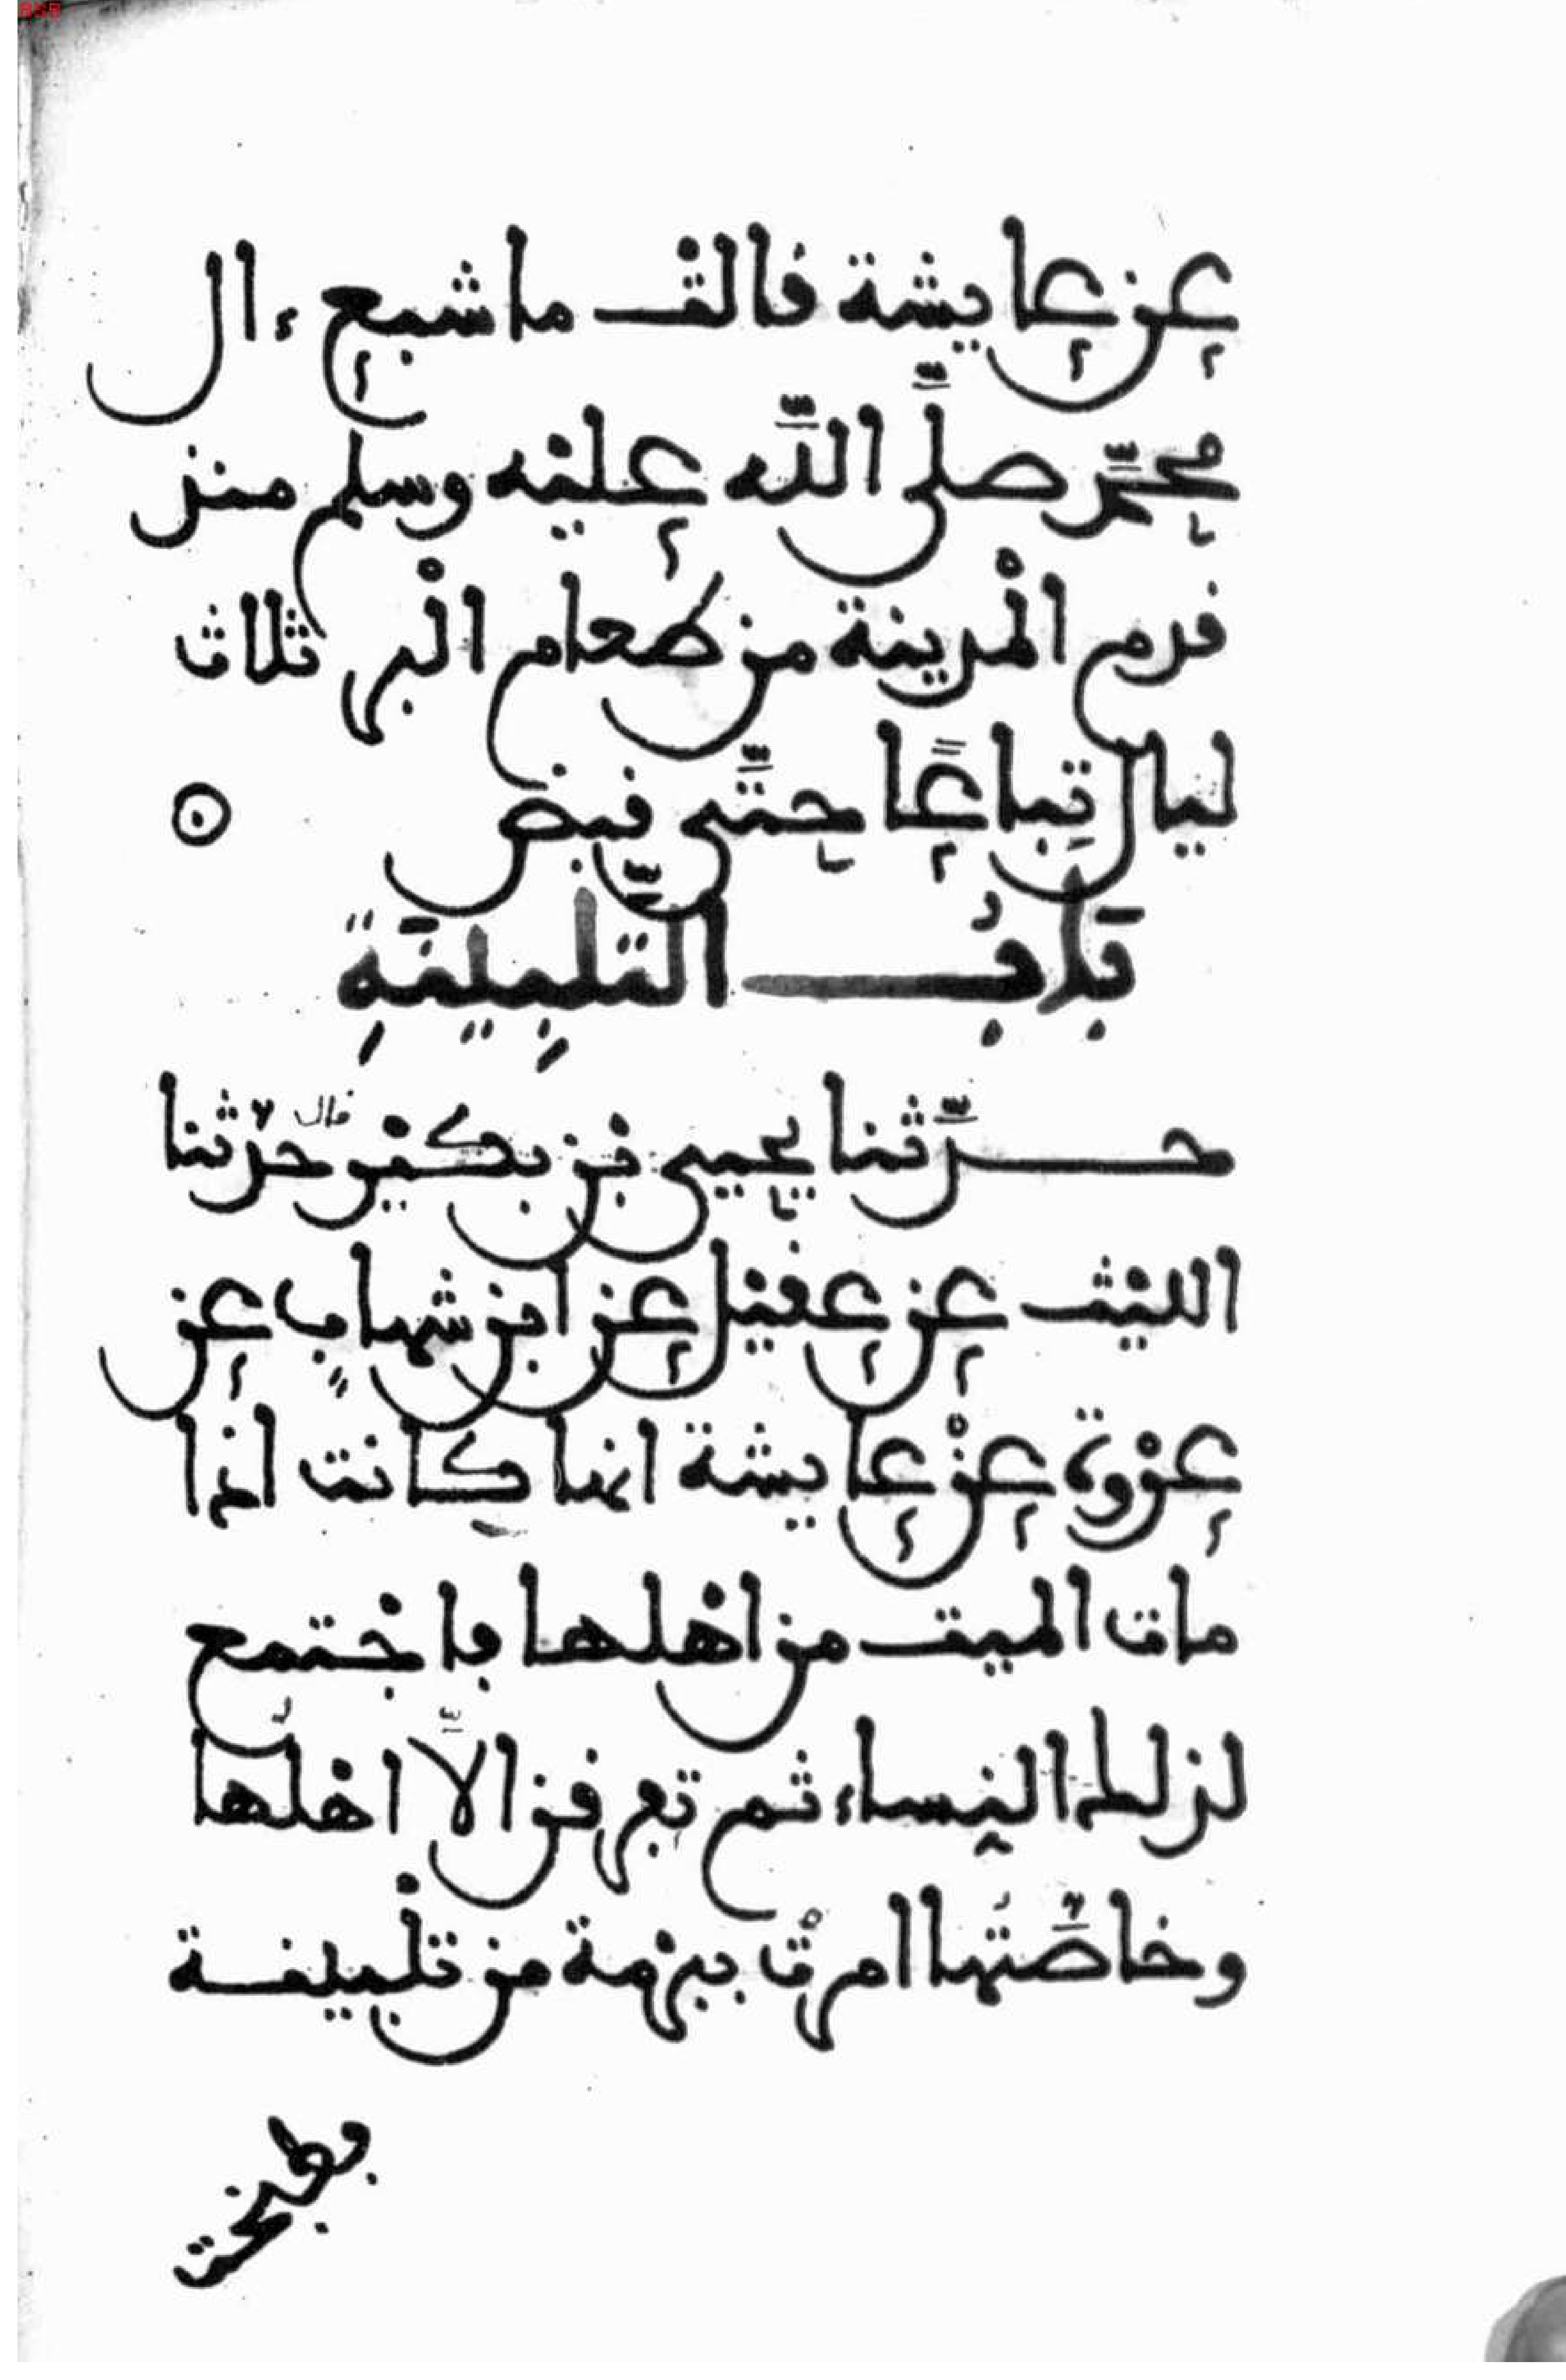 عن عايشة قالت ما شبع ءال
محمّد صلَّى اللَّه عليْه وسلم منذ
قدم الْمدينة من طعام الْبر ثلاث
ليال تِباعًا حتَّى قبض
بَابُ التَّلْبِينَةِ
حدَّثنا يحيى بن بكيْر قال حدّثنا
الليْث عن عقيْل عن ابن شهابٍ عن
عرْوة عنْ عايشة انها كانت اذا
مات الميت من اهْلها فاجْتمع
لذلك النِساء ثم تفرقن الاَّ اهْلَها
وخاصَّتَها امرتْ ببرْمة من تلْبينة
فطبخت